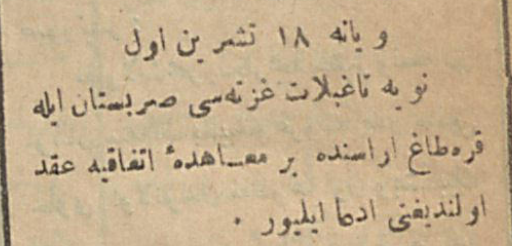 ویانه ١٨ تشرین اول
نویه تاغبلات غزته‌سی صربستان ایله
قره‌طاغ اراسنده بر معاهدهٔ اتفاقیه عقد
اولندیغنی ادعا ایلیور ٠